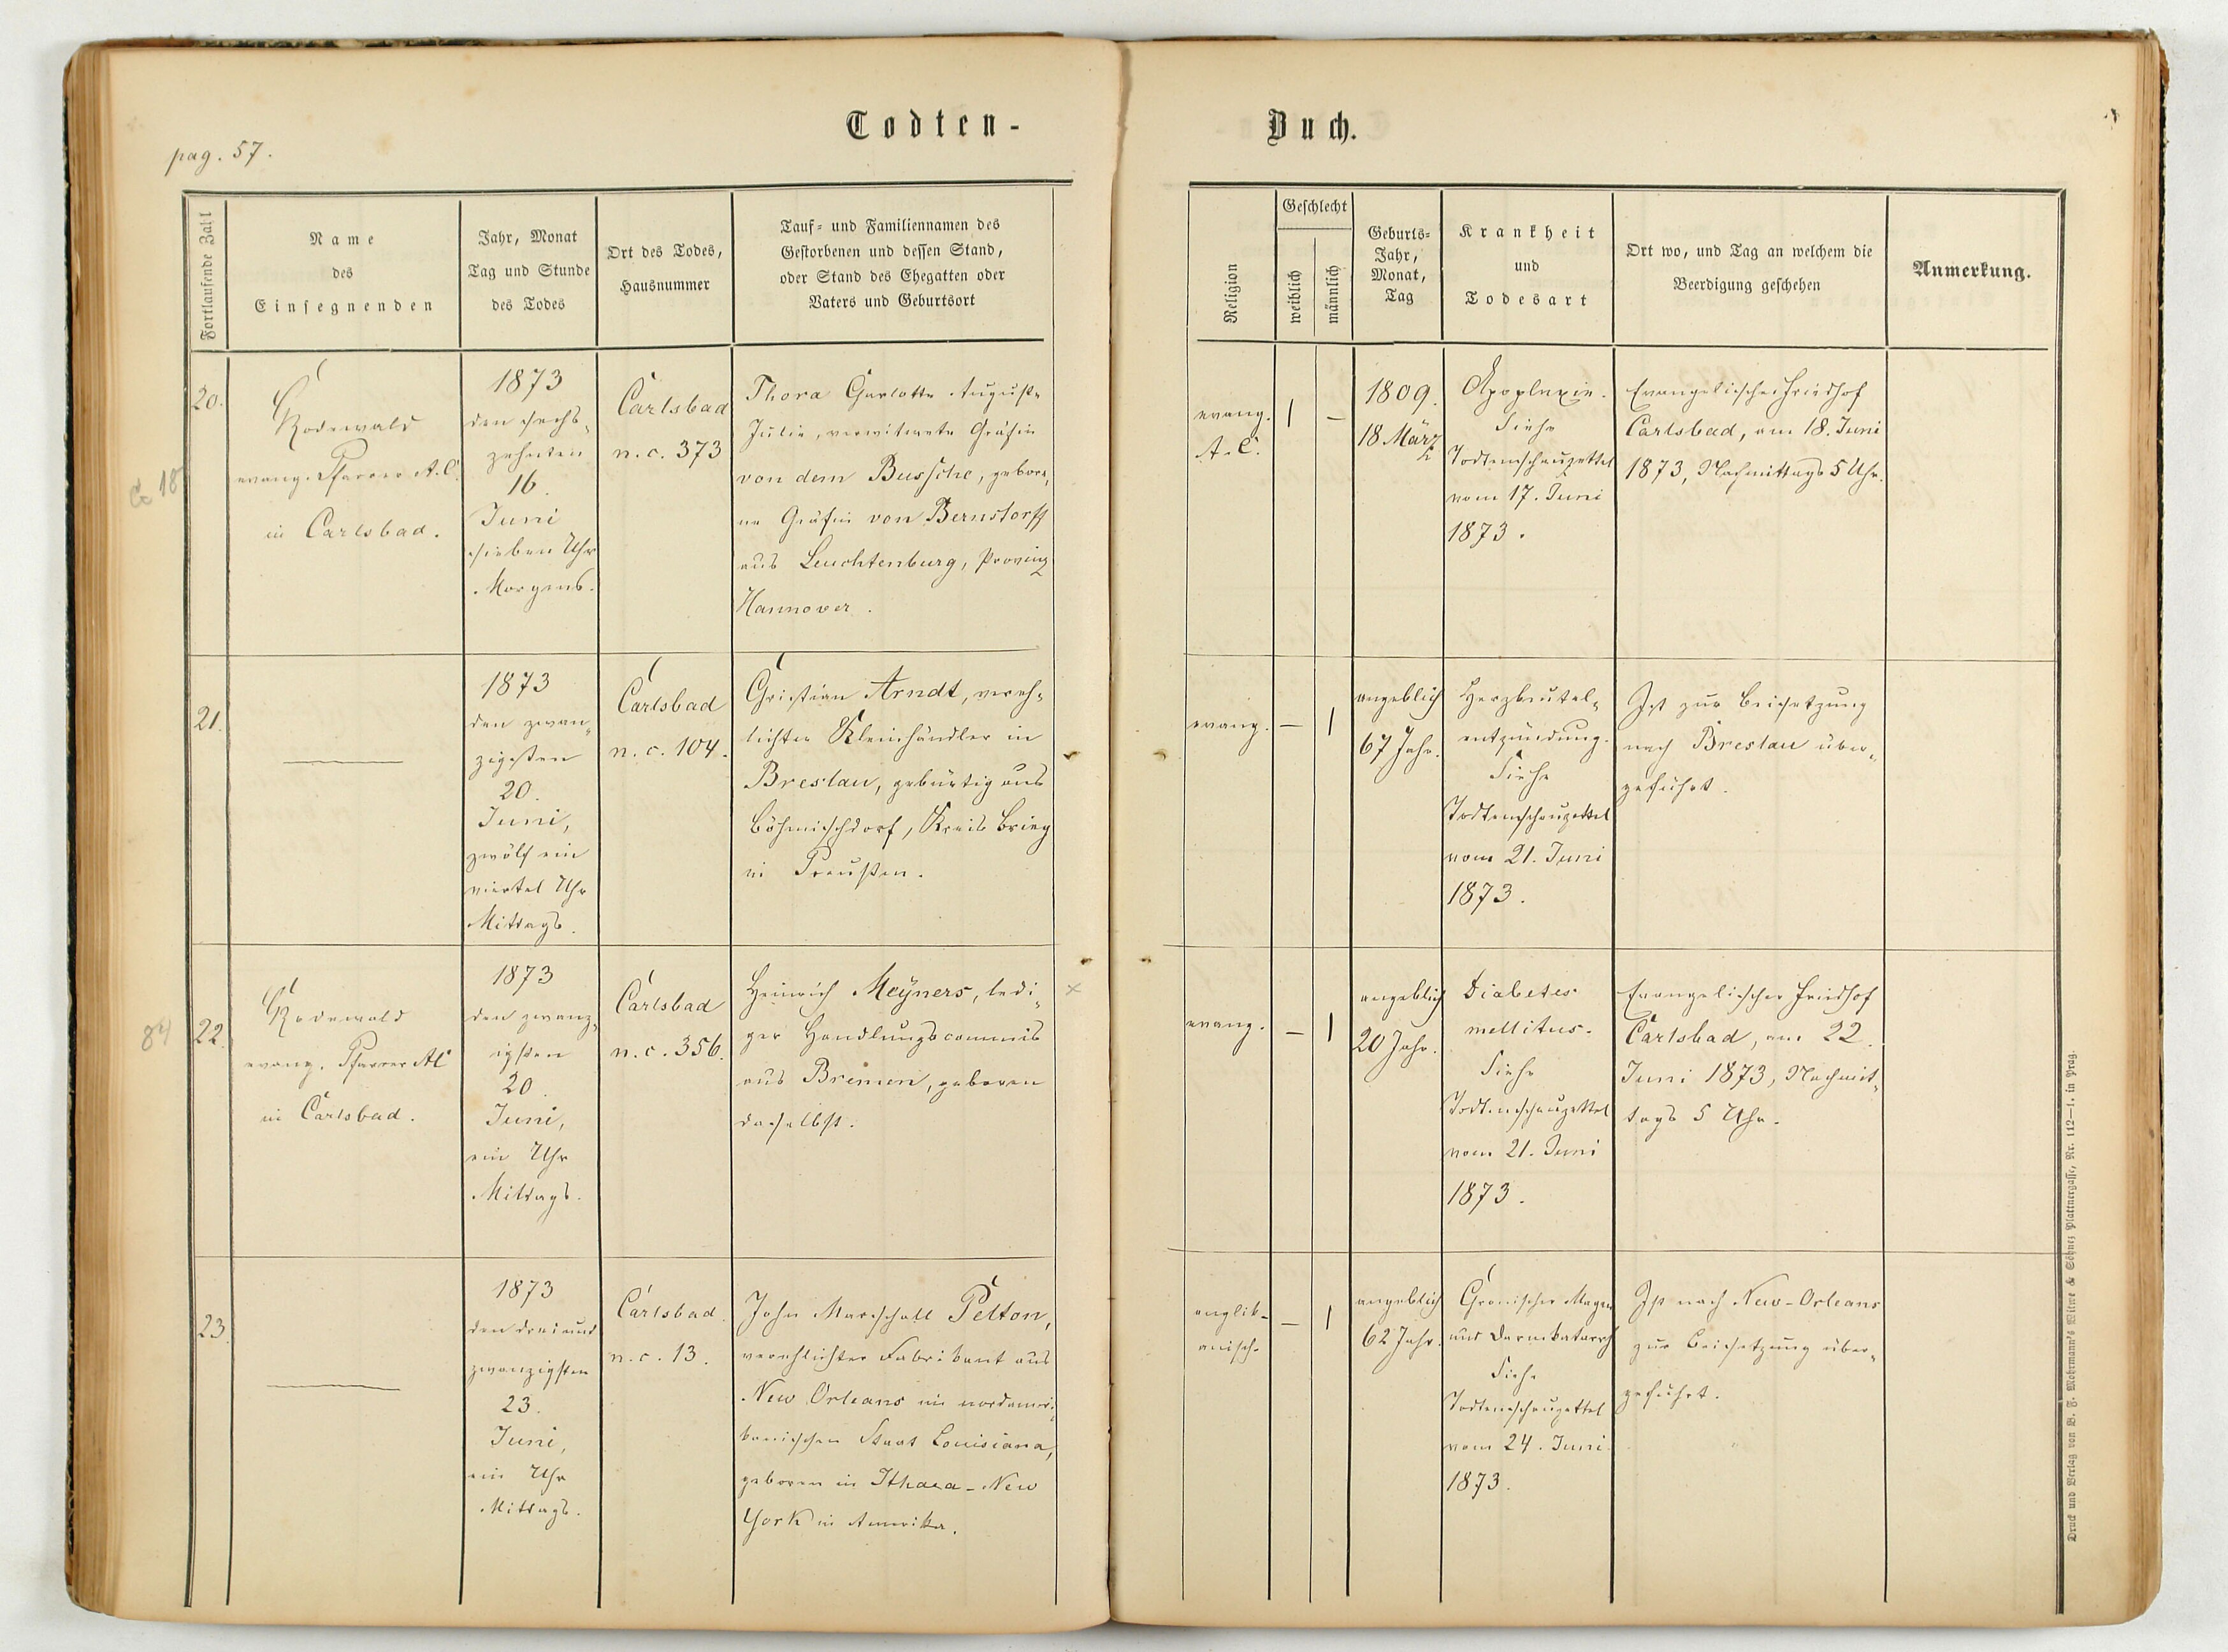 Todten-
Buch.
pag. 57.
Fortlaufende Zahl
Name
des
Einsegnenden
Jahr, Monat
Tag und Stunde
des Todes
Ort des Todes,
Hausnummer
Tauf- und Familiennamen des
Gestorbenen und dessen Stand,
oder Stand des Ehegatten oder
Vaters und Geburtsort
Religion
Geschlecht
weiblich
männlich
Geburts-
Jahr,
Monat,
Tag
Krankheit
und
Todesart
Ort wo, und Tag an welchem die
Beerdigung geschehen
Anmerkung.
20.
18
Rodewald
evang. Pfarrer A. C.
in Carlsbad.
1873
den sechs-
zehnten
16.
Juni
sieben Uhr
Morgens.
Carlsbad
n. c. 373
Thora Charlotte Auguste
Julie, verwitwete Gräfin
von dem Bussche, gebore-
ne Gräfin von Bernstorff
aus Leuchtenburg, Provinz
Hannover.
evang.
A. C.
1
–
1809.
18 März
Apoplexie.
Siehe
Todtenschauzettel
vom 17. Juni
1873.
Evangelischer Friedhof
Carlsbad, am 18. Juni
1873, Nachmittags 5 Uhr.
21.
1873
den zwan-
zigsten
20.
Juni,
zwölf ein
viertel Uhr
Mittags.
Carlsbad
n. c. 104.
Christian Arndt, vereh-
lichter Kleinhändler in
Breslau, gebürtig aus
Böhmischdorf, Kreis Brieg
in Preußen.
evang.
–
1
angeblich
67 Jahr.
Herzbeutel-
entzündung.
Siehe
Todtenschauzettel
vom 21. Juni
1873.
Ist zur Beisetzung
nach Breslau über-
geführt.
84
22.
Rodewald
evang. Pfarrer AC
in Carlsbad.
1873
den zwanz-
igsten
20.
Juni,
ein Uhr
Mittags.
Carlsbad
n. c. 356.
Heinrich Meÿners, ledi-
ger Handlungscommis
aus Bremen, geboren
daselbst.
×
evang.
–
1
angeblich
20 Jahr.
Diabetes
mellitus.
Siehe
Todtenschauzettel
vom 21. Juni
1873.
Evangelischer Friedhof
Carlsbad, am 22.
Juni 1873, Nachmit-
tags 5 Uhr.
23.
1873
den drei und
zwanzigsten
23.
Juni,
ein Uhr
Mittags.
Carlsbad.
n. c. 13.
John Marschall Pelton,
verehlichter Fabrikant aus
New Orleans im nordameri-
kanischen Staat Louisiana,
geboren in Ithaca-New
York in Amerika.
anglik-
anisch.
–
1
angeblich
62 Jahr.
Chronischer Magen
und Darmkatarrh
Siehe
Todtenschauzettel
vom 24. Juni.
1873.
Ist nach New-Orleans
zur Beisetzung über-
geführt.
Druck und Verlag von B. F. Mohrmann's Witwe & Söhne, Plattnergasse, Nr. 112—1. in Prag.